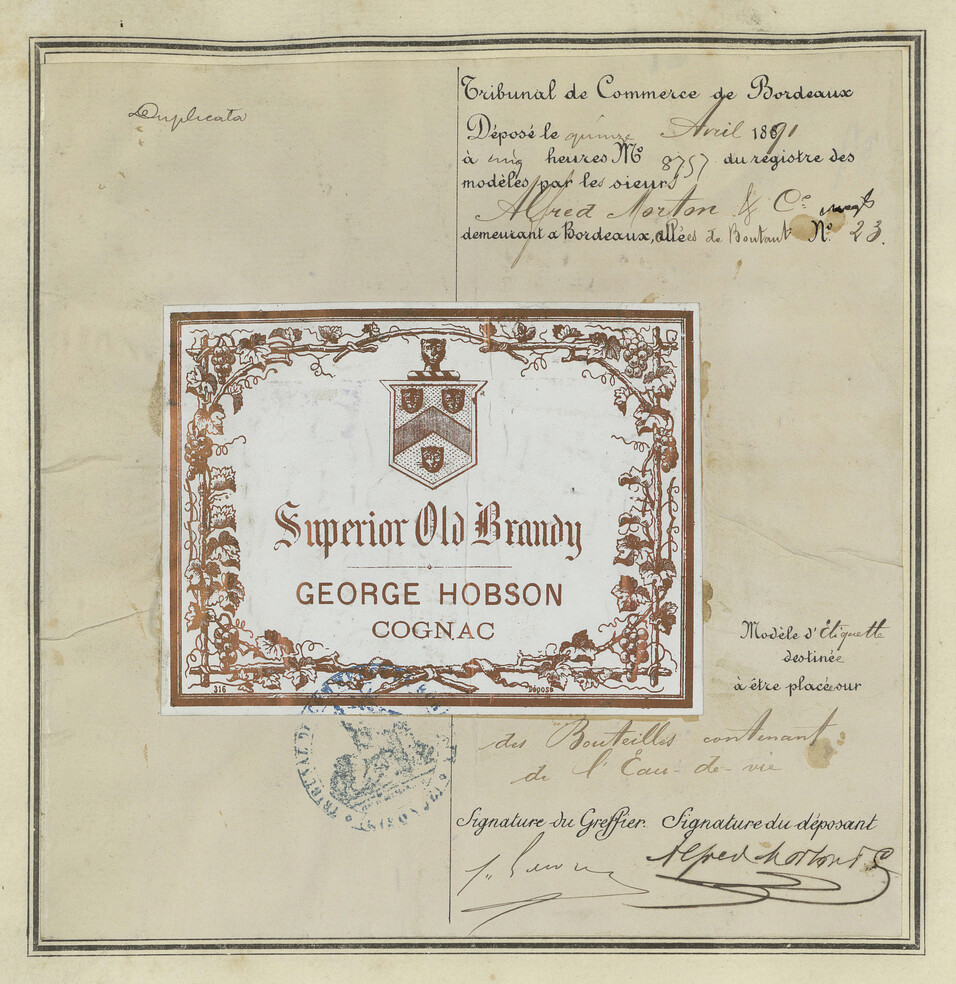 Duplicata
Tribunal de Commerce de Bordeaux
Déposé le quinze Avril 1891
à cinq heures Nº 8757 du registre des
modèles par les sieurs
Alfred Morton & Cie
demeurant à Bordeaux, allées de Boutaut Nº 23.
Superior Old Brandy
GEORGE HOBSON
COGNAC
316 Déposé
Modèle d'Étiquette
destinée
à être placé sur
des Bouteilles contenant
de l'Eau-de-vie
Signature du Greffier. Signature du déposant
Alfred Morton & C